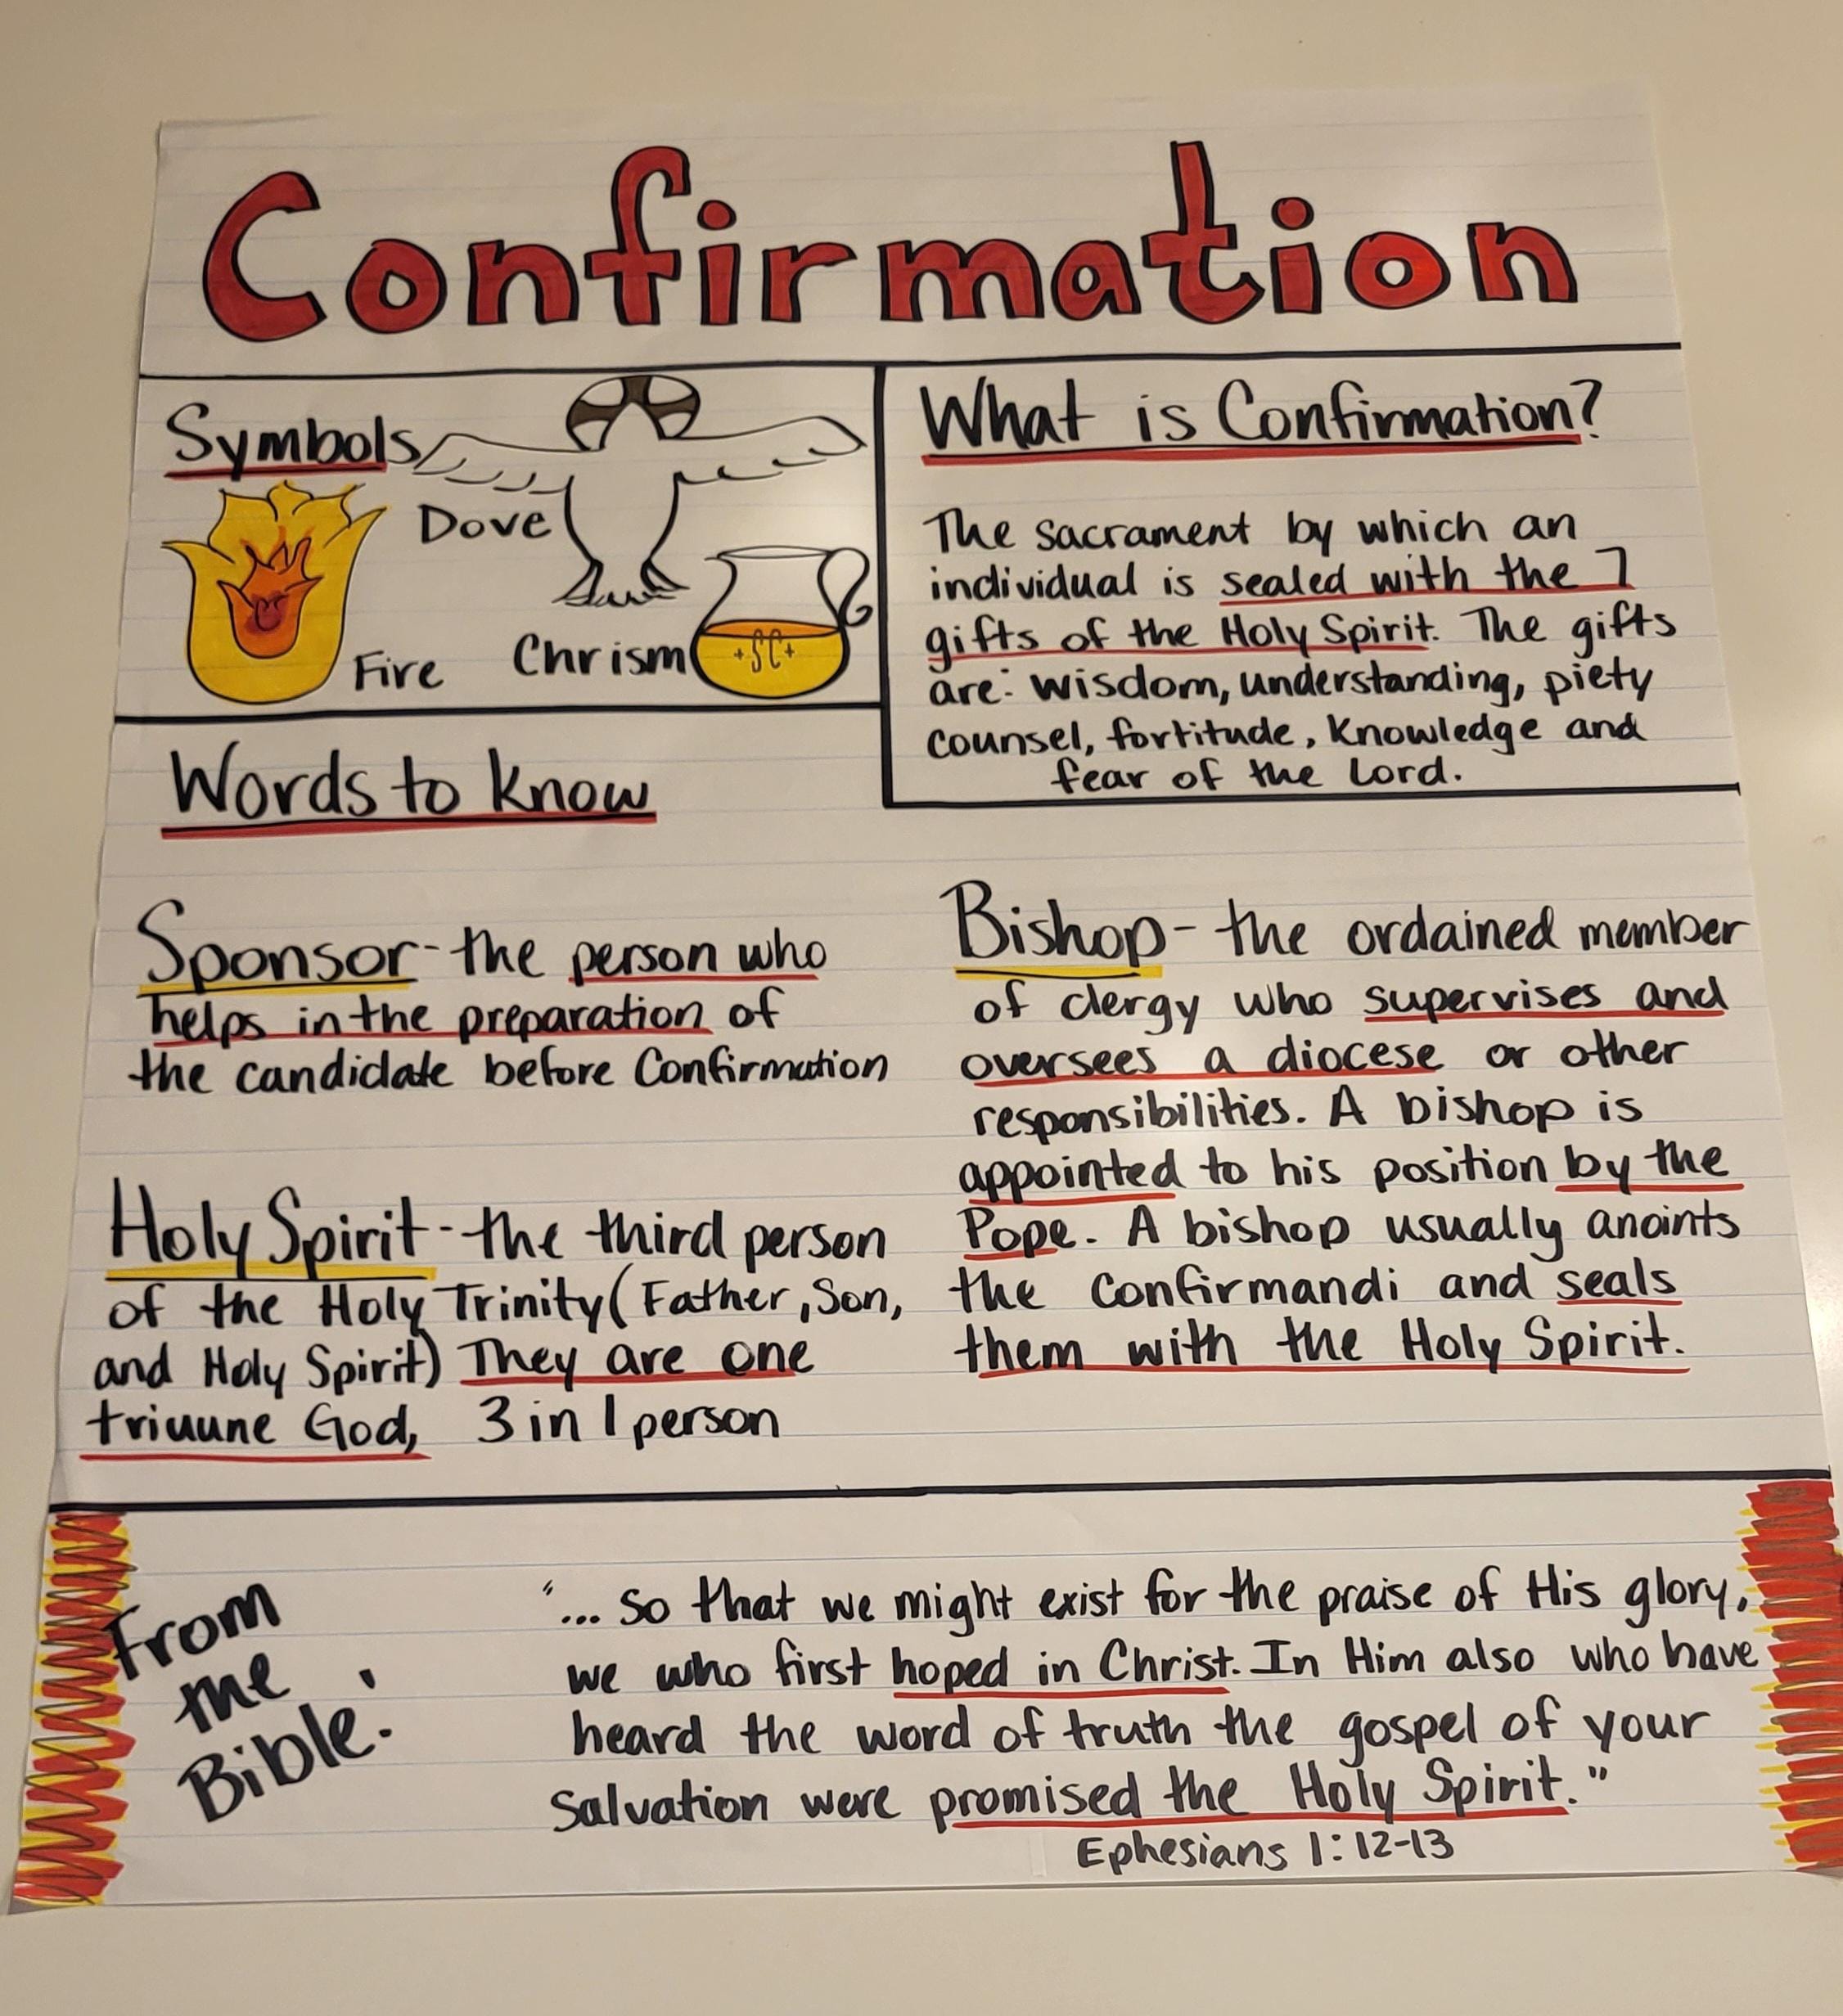 Confirmation
Symbols
Dove
Fire
Chrism
+SC+
What is Confirmation?
The sacrament by which an
individual is sealed with the 7
gifts of the Holy Spirit. The gifts
are: wisdom, understanding, piety
counsel, fortitude, knowledge and
fear of the Lord.
Words to know
Sponsor- the person who
helps in the preparation of
the candidate before Confirmation
Holy Spirit- the third person
of the Holy Trinity (Father, Son,
and Holy Spirit) They are one
triuune God, 3 in 1 person
Bishop- the ordained member
of clergy who supervises and
oversees a diocese or other
responsibilities. A bishop is
appointed to his position by the
Pope. A bishop usually anoints
the Confirmandi and seals
them with the Holy Spirit.
From
the
Bible:
"... so that we might exist for the praise of His glory,
we who first hoped in Christ. In Him also who have
heard the word of truth the gospel of your
Salvation were promised the Holy Spirit."
Ephesians 1:12-13